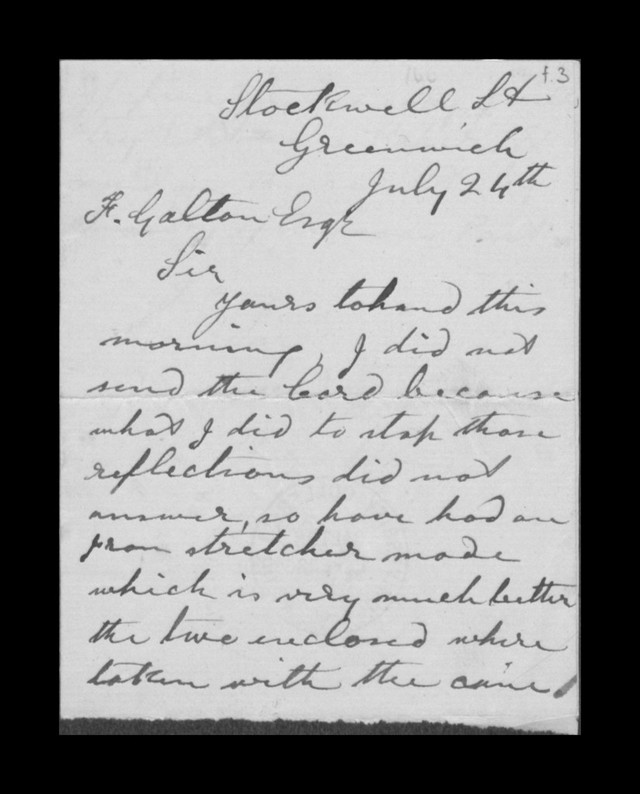 f.3
Stockwell St
Greenwich
July 24th
F. Galton Esqr
Sir
yours to hand this
morning, I did not
send the Card because
what I did to stop those
reflections did not
answer, so have had an
iron stretcher made
which is very much better
the two enclosed where
taken with the cane